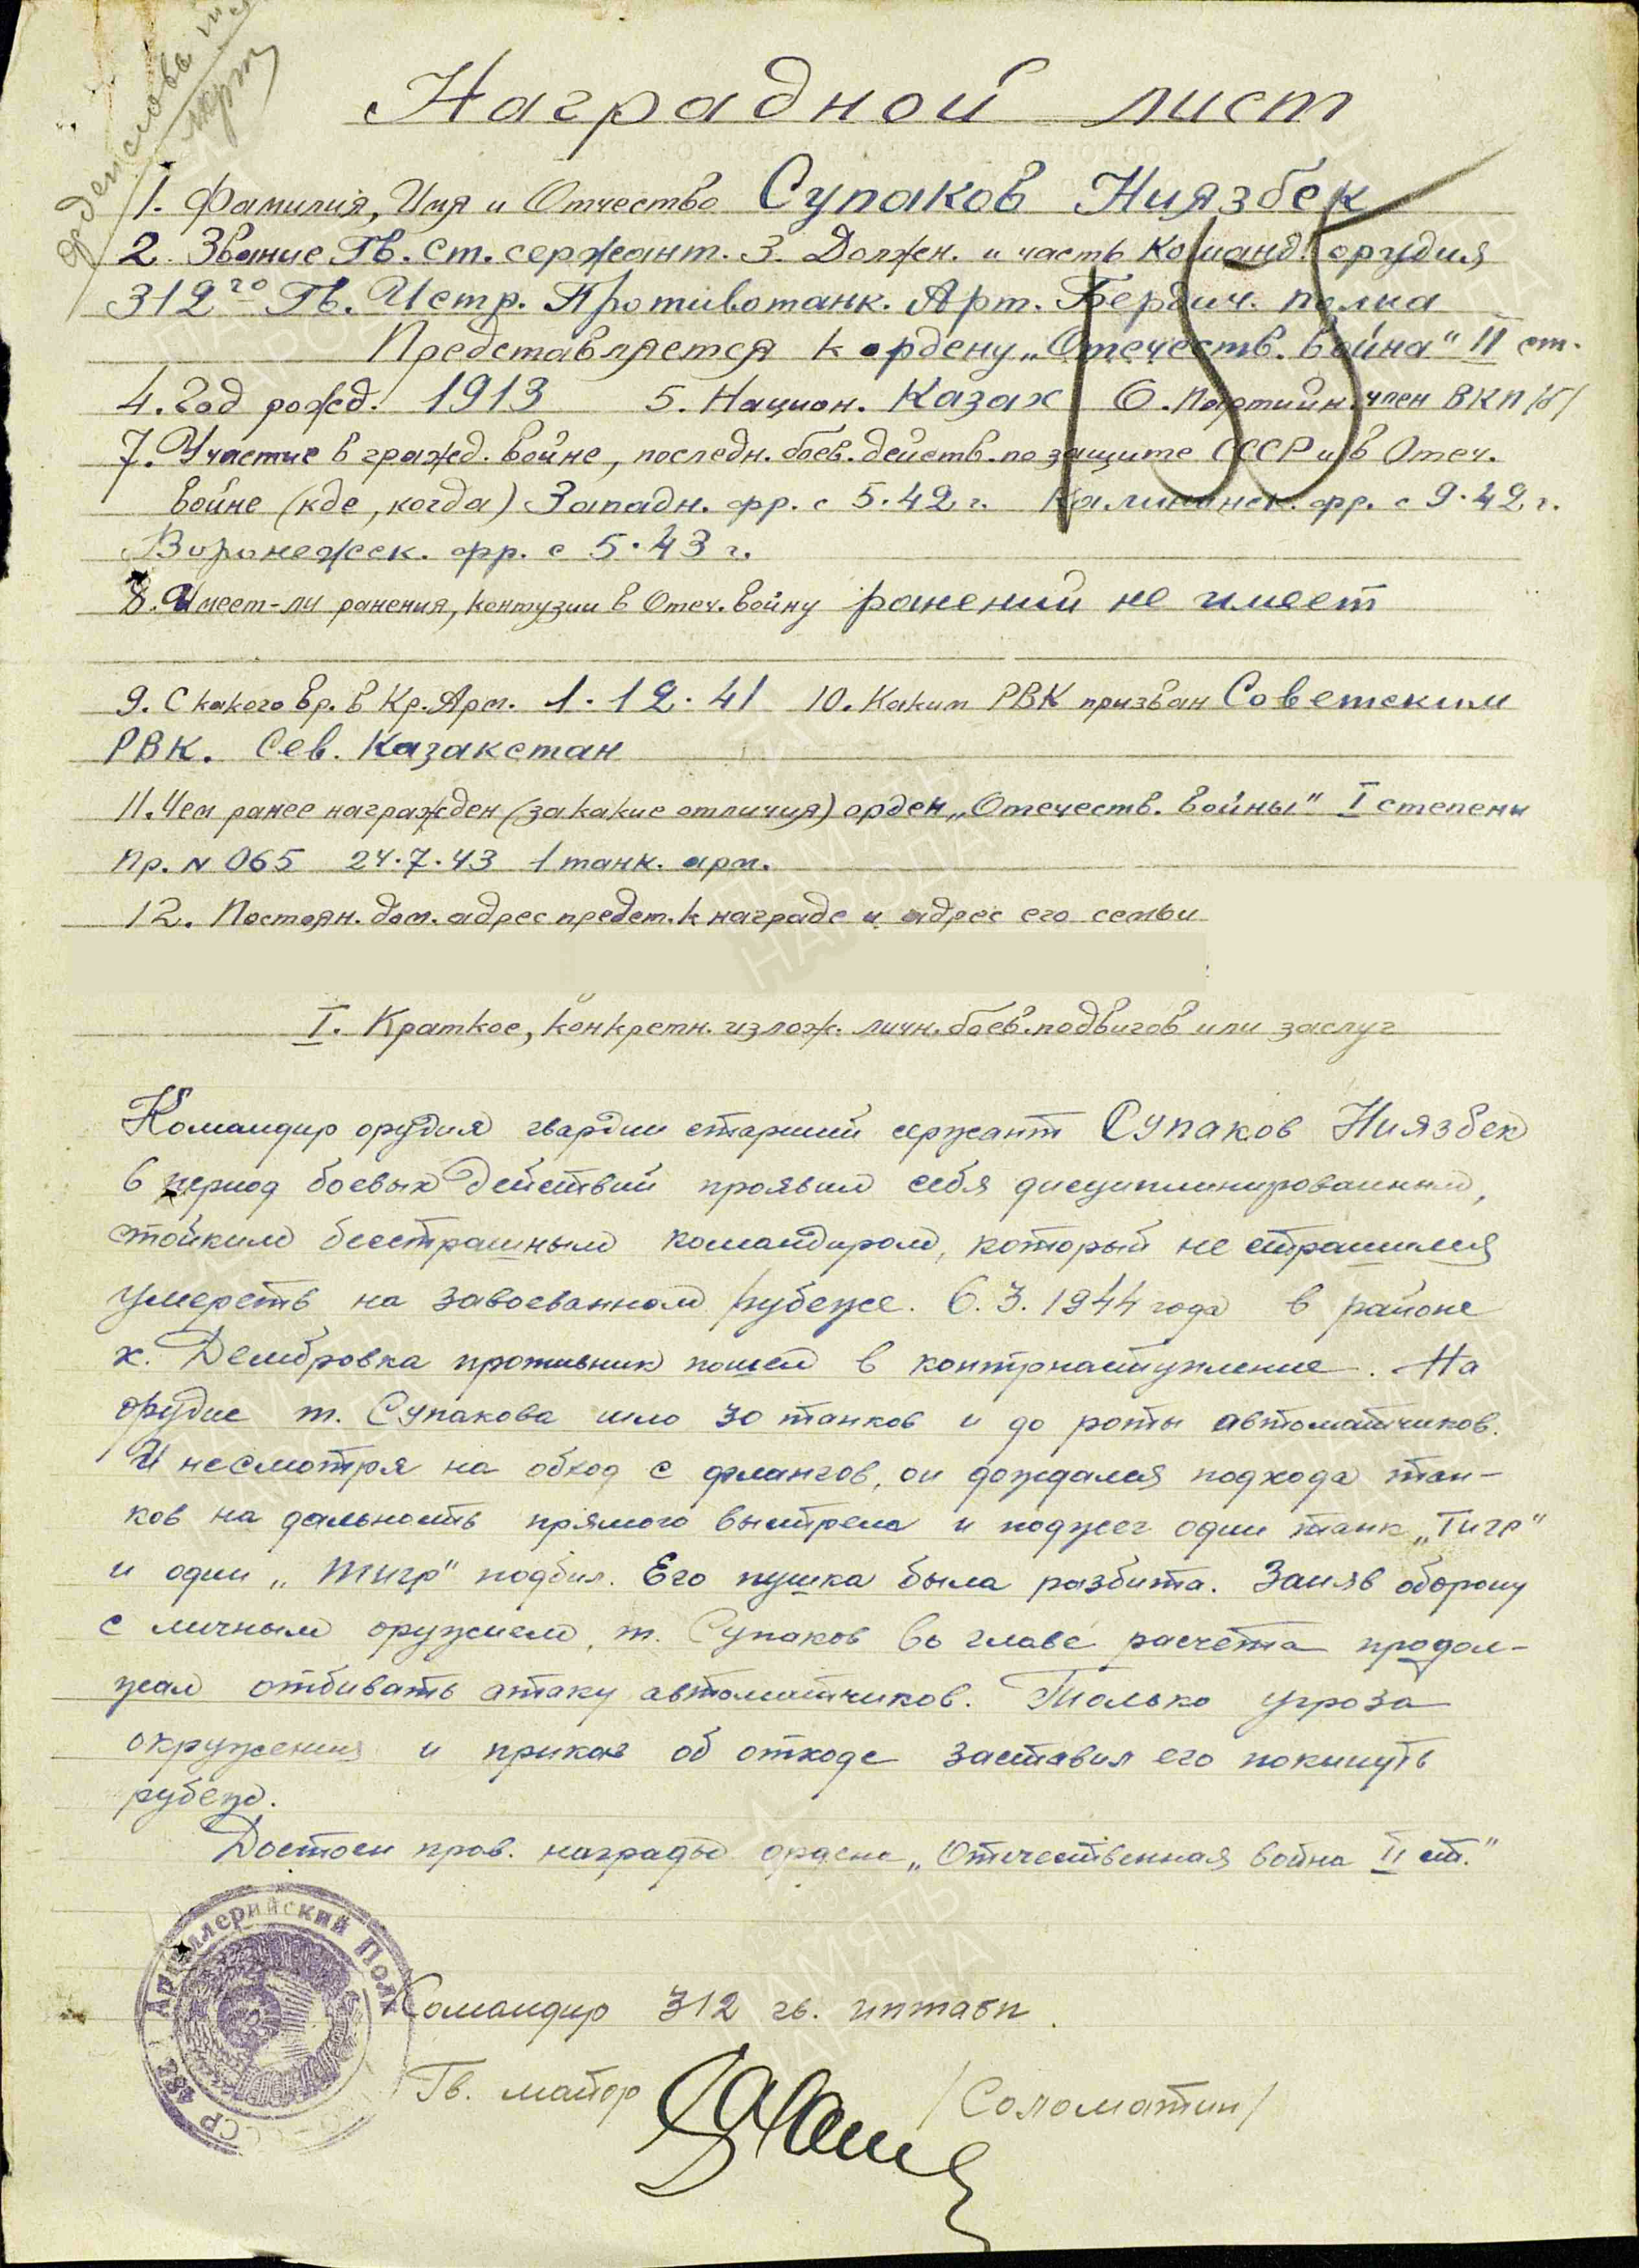 орденслава
Наградной лист
1. Фамилия, Имя и Отчество Супаков Ниязбек
2. Звание Гв. Ст. сержант. 3. Должен. и часть Команд. орудия
312го Гв. Истр. Противотанк. Арт. Бердич. полка
Представляется к ордену „Отечеств. война" II ст.
155
4. Год рожд. 1913 5. Национ. Казах 6. Партийн. член ВКП/б/
7. Участие в гражд. войне, последн. боев. действ. по защите СССР и в Отеч.
войне (кде, когда) Западн. фр. с 5.42 г. Калининск. фр. с 9.42 г.
Воронежск. фр. с 5.43 г.
8. Имеет-ли ранения, контузии в Отеч. войну ранений не имеет
9. С какого вр. в Кр. Арм. 1.12.41 10. Каким РВК призван Советским
РВК. Сев. Казакстан
11. Чем ранее награжден (за какие отличия) орден „Отечеств. войны" I степени
Пр. N 065 24.7.43 1 танк. арм.
12. Постоян. дом. адрес предст. к награде и адрес его семьи
I. Краткое, конкретн. излож. личн. боев. подвигов или заслуг
Командир орудия гвардии старший сержант Супаков Ниязбек
в период боевых действий проявил себя дисциплинированным,
стойким бесстрашным командиром, который не страшился
умереть на завоеванном рубеже. 6.3.1944 года в районе
х. Дембровка противник пошел в контрнаступление. На
орудие т. Супакова шло 30 танков и до роты автоматчиков.
И несмотря на обход с флангов, он дождался подхода тан-
ков на дальность прямого выстрела и поджег один танк „Тигр"
и один „Тигр" подбил. Его пушка была разбита. Заняв оборону
с личным оружием, т. Супаков во главе расчёта продол-
жал отбивать атаку автоматчиков. Только угроза
окружения и приказ об отходе заставил его покинуть
рубеж.
Достоен прав. награды ордена „Отечественная война II ст."
Артиллерийский Полк
СССР
Командир 312 гв. иптабп.
Гв. майор /Соломатин/